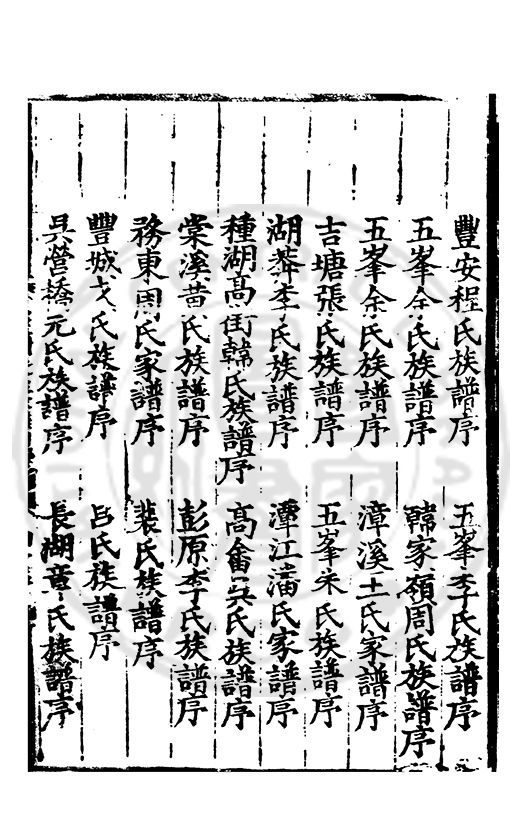 豐安程氏族譜序　五峯李氏族譜序
五峯余氏族譜序　韓家嶺周氏族譜序
五峯余氏族譜序　漳溪王氏家譜序
吉塘張氏族譜序　五峯朱氏族譜序
湖莽李氏族譜序　潭江潘氏家譜序
種湖高街韓氏族譜序　高畬吳氏族譜序
棠溪黄氏族譜序　彭原李氏族譜序
務東周氏家譜序　裴氏族譜序
豐城戈氏族譜序　呂氏族譜序
吳營橋元氏族譜序　長湖章氏族譜序